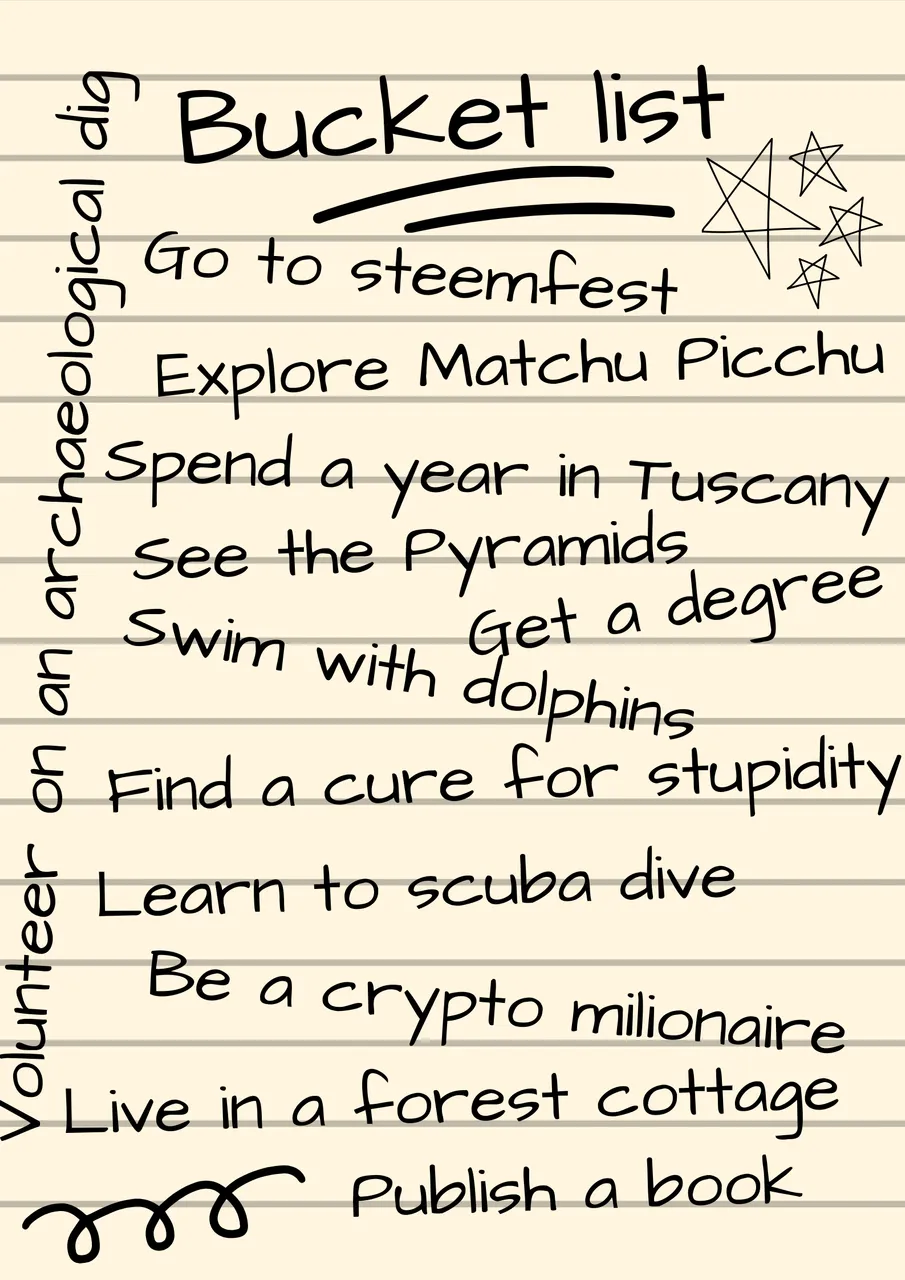 Bucket list
Go to steemfest
Explore Matchu Picchu
Spend a year in Tuscany
See the Pyramids
Get a degree
Swim with dolphins
Find a cure for stupidity
Learn to scuba dive
Be a crypto milionaire
Live in a forest cottage
Publish a book
Volunteer on an archaeological dig